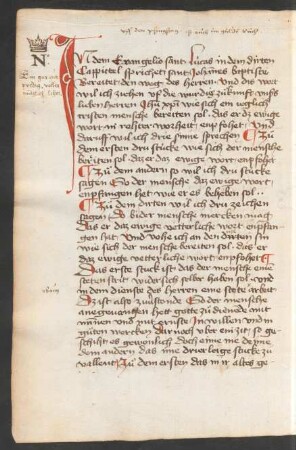 N
In dem Evangelio sant Lucas in dem dirten
Cappitel sprichet sant Johānes baptiste
Bereitet den weg des herren Und die wort
wil ich ziehen uf die wurdig zukunft unsers
lieben herren Jhū xpi wie sich ein ieglich
cristen mensche bereiten sol das er dz ewige
wort in rehter worheit enpfohet Und
daruff wil ich drie sinne sprechen Zu
dem ersten dru stucke wie sich der mensche
bereiten sol daz er daz ewige wort enpfohet
Zu dem andern so wil ich dru stucke
sagen So der mensche daz ewige wort
enpfangen het wie er es beheben sol
Zu dem dirten wil ich dru zeichen
sagen do bi der mensche mercken mag
das er daz ewige vetterliche wort enpfan
gen hat Und vohe ich an den dirten sin
wie sich der mensche bereiten sol das er
daz ewige vetterliche wort enpfohet
Das erste stuck ist das der mensche eine
stoten strit wider sich selber haben sol und
in dem dienste des herren eine stote arbeit
Dz ist also zuverstonde So der mensche
anegevangen het gotte zu dienende mit
mūnen und mit ernste In willen und in
guten wercken darnoch uber ein zit so ge
schiht es gewonlich doch eime me denne
dem andern das ime drierleige stucke zu
vallent Zu dem ersten das in ir altes ge